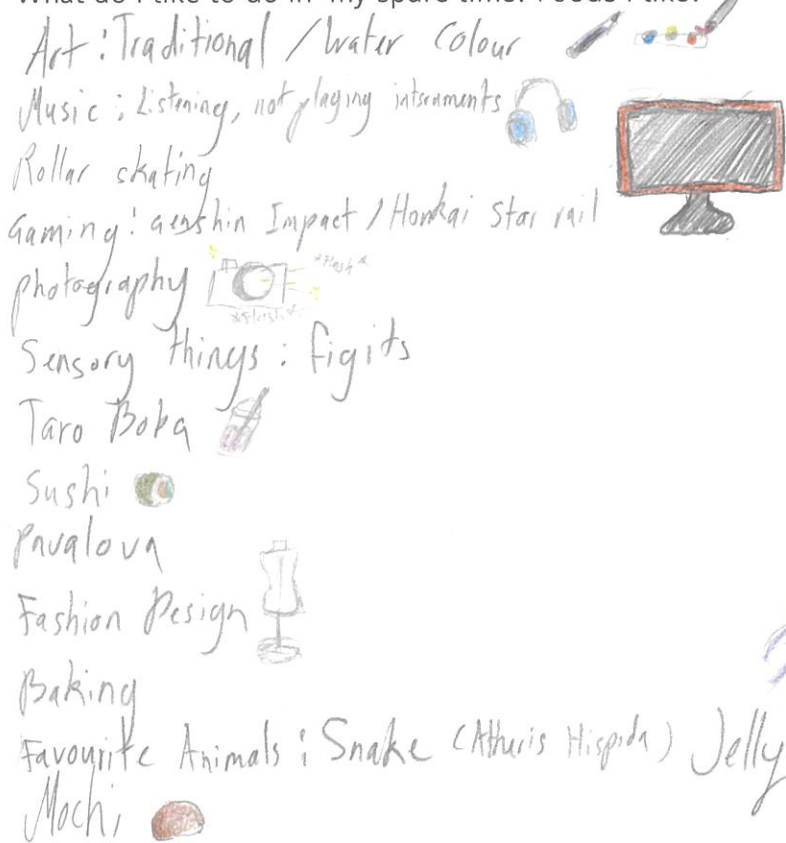 What do I like to do in my spare time? Foods I like?
Art : Traditional / water colour
Music : Listening, not playing intsruments
Rollar skating
Gaming : Genshin Impact / Honkai Star rail
photography *flash*
*flash*
Sensory things : figits
Taro Boba
Sushi
Pavalova
Fashion Design
Baking
Favourite Animals : Snake (Atheris Hispida) Jelly
Mochi